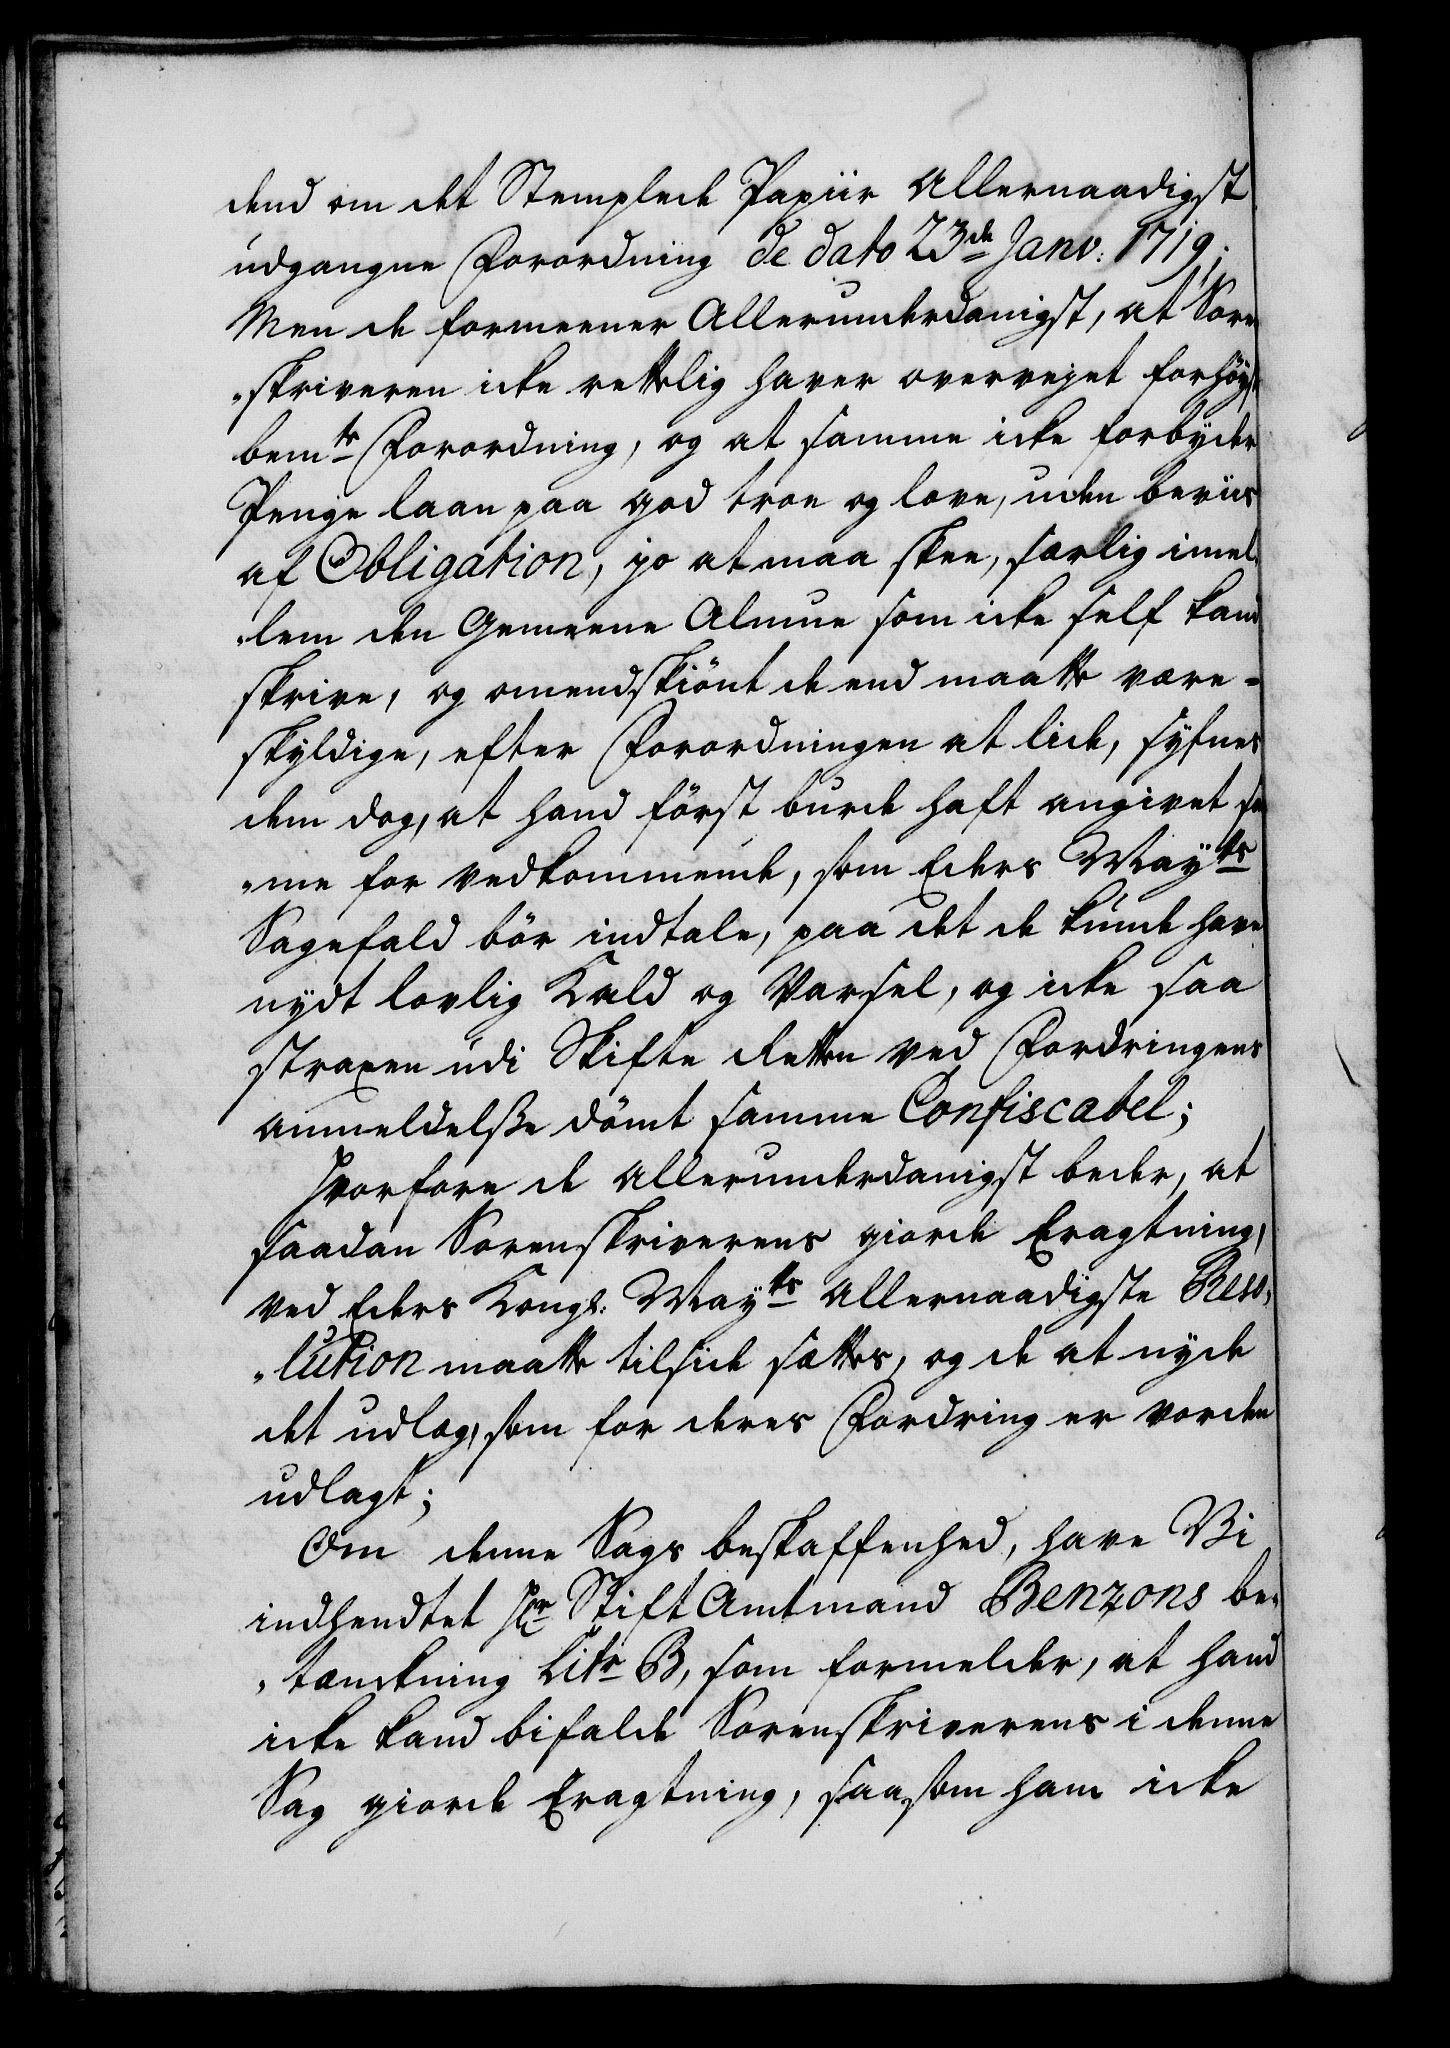 dend om det Stemplede Papiir Allernaadigst
udgangne Forordning de dato 23de Janv: 1719;
Men de formeener Allerunderdanigst, at Soren
„skriveren icke rettelig haver overvejet forhöyst
bemte Forordning, og at samme icke forbyder
Penge laan paa god troe og love, uden beviis
af Obligation, jo at maa skee, særlig imel„
„lem den Gemeene Almue som icke self kand
skrive, og omendskiönt de end maatte være
skyldige, efter Forordningen at lide, sÿfnes
dem dog, at hand först burde haft angivet sa
„me for vedkommende, som Eders Mayts
Sagefald bör indtale, paa det de kunde have
nydt lovlig Kald og Varsel, og icke saa
straxen udi Skifte Retten ved Fordringens
anmeldelsse dömt samme Confiscabel;
Hvorfore de allerunderdanigst beder, at
saadan Sorenskriverens giorde Eragtning,
ved Eders Kongl: Maytts allernaadigste Reso„
„lution maatte tilside sættes, og de at nyde
det udlæg, som for deres Fordring er vorden
udlagt;
Om denne Sags beskaffenhed, have Vi
indhendtet Hr Stift Amtmand Benzons be„
„tænckning Litr B, som formelder, at hand
icke kand bifalde Sorenskriverens i denne
Sag giorde Eragtning, saasom ham icke